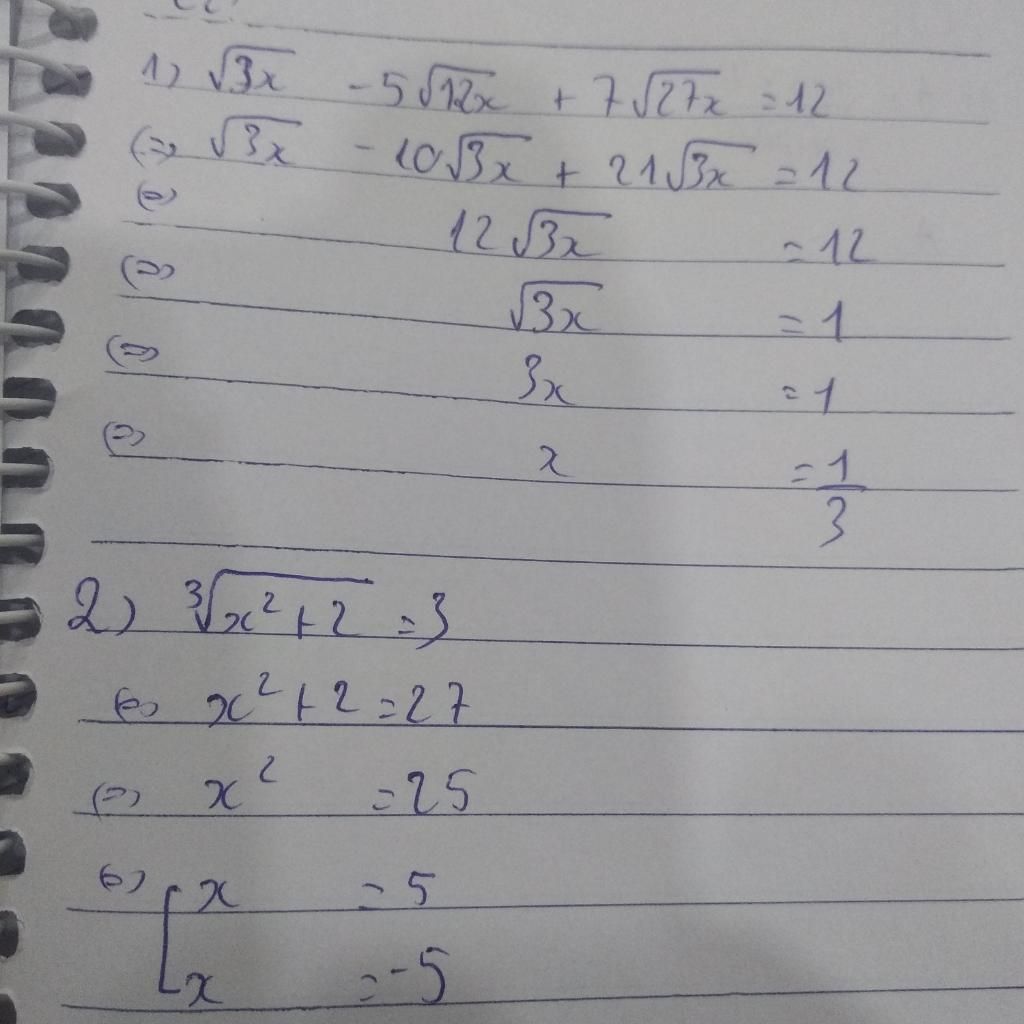 1) √3x - 5√12x + 7√27x = 12
(=) √3x - 10√3x + 21√3x = 12
(=) 12√3x = 12
(=) √3x = 1
(=) 3x = 1
(=) x = 1/3
2) ³√x²+2 = 3
(=) x²+2 = 27
(=) x² = 25
(=) [x = 5
x = -5